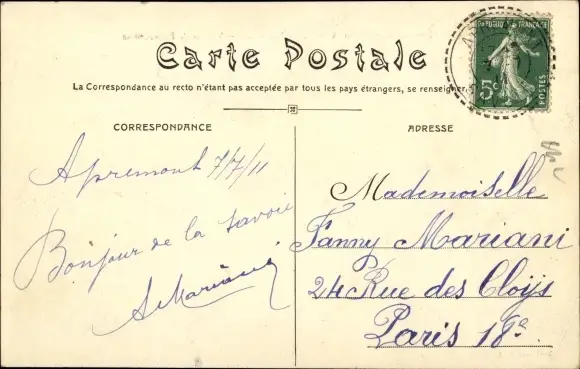 Carte Postale
La Correspondance au recto n'étant pas acceptée par tous les pays étrangers, se renseigner
CORRESPONDANCE
ADRESSE
REPUBLIQUE FRANÇAISE
5c
POSTES
Apremont 7/7/11
Bonjour de la Savoie
A Mariani
Mademoiselle
Fanny Mariani
24 Rue des Cloÿs
Paris 18e